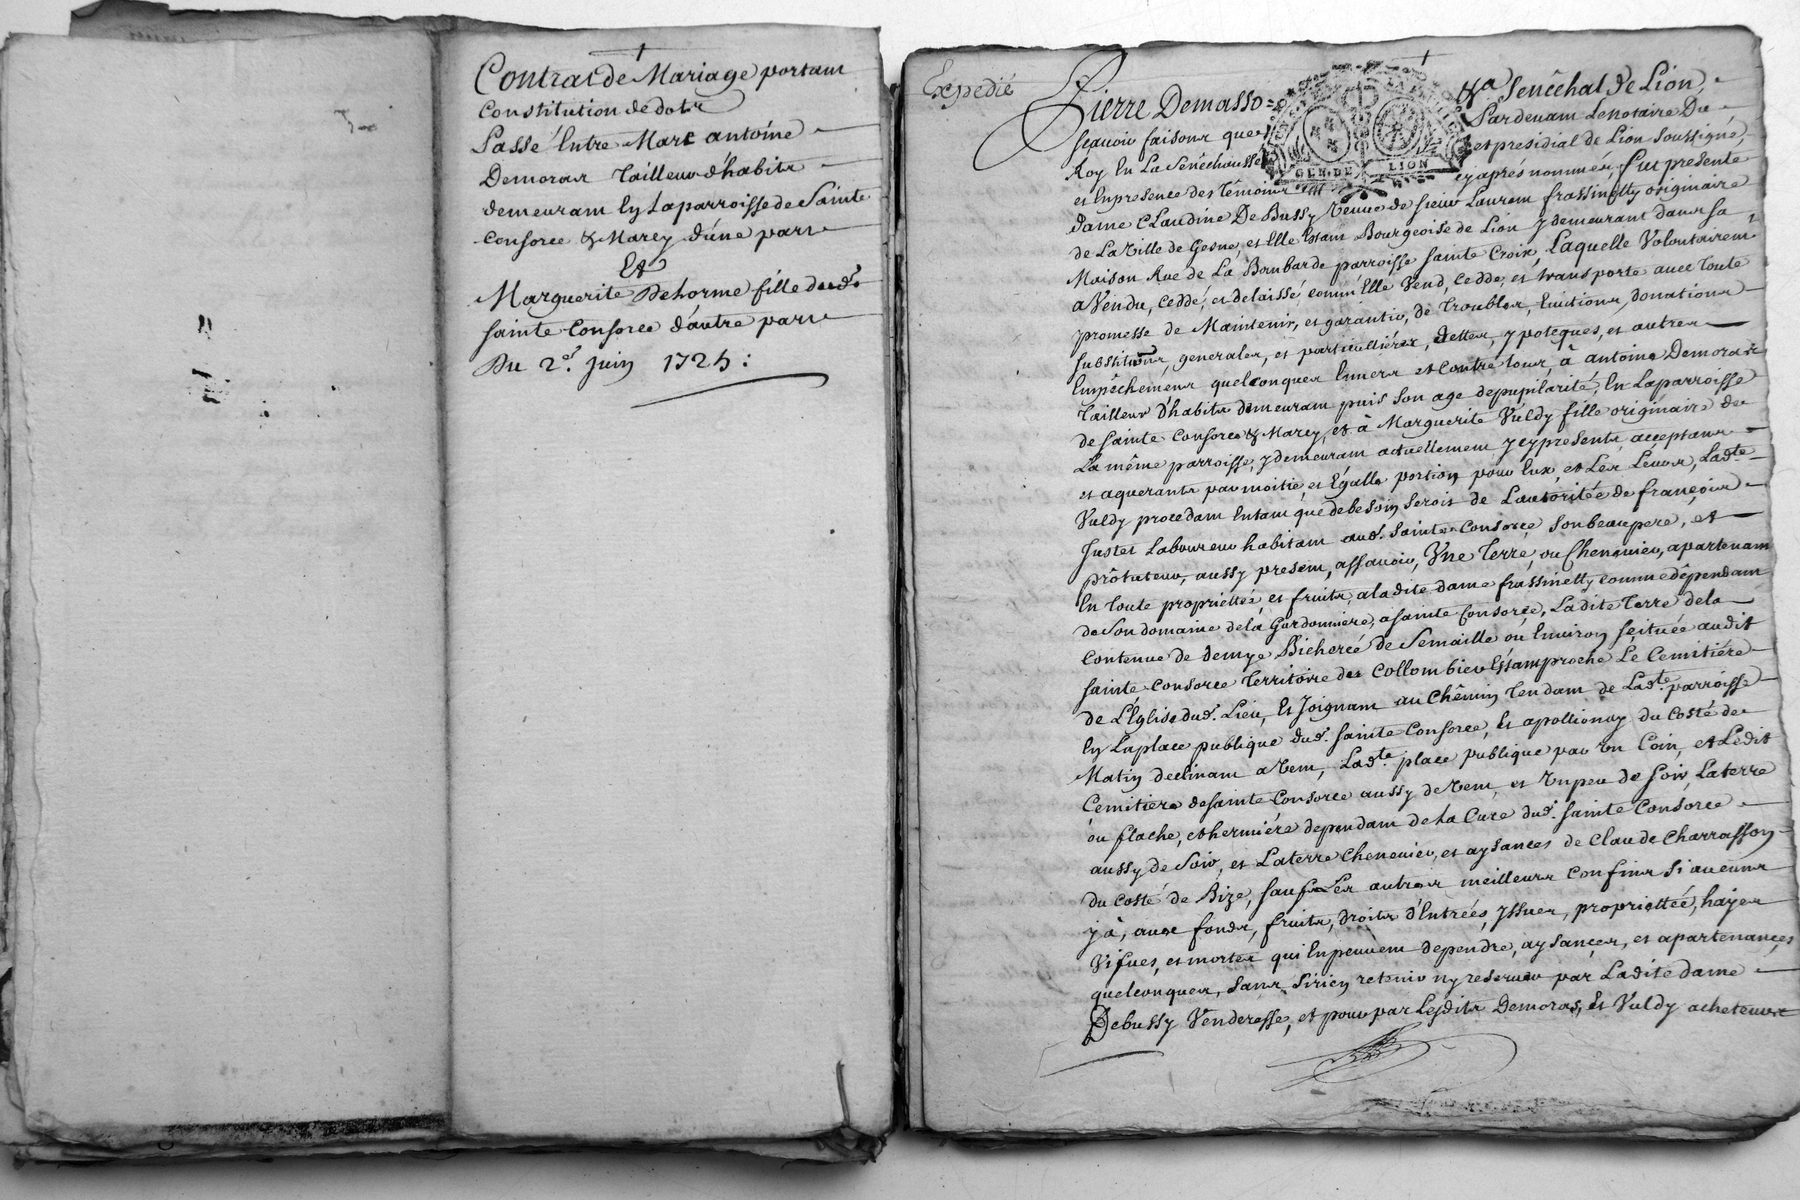 Contrat de Mariage portant
Constitution de dots
Passé Entre Marc antoine
Demoras Tailleur d'habits
demeurant En Laparroisse de Sainte
Consorce & Marcy d'une part
Et
Marguerite Delorme fille dud.
sainte Consorce d'autre part
Du 2e. juin 1725:
Expedié
Pierre Demasso
& a Senêchal de Lion,
sçavoir faisons que
Pardevant Lenotaire Du
Roy En La Senéchaussée
et presidial de Lion soussigné,
et Enpresence des témoins
cy aprés nommés, fut presente
dame CLaudine De Bussy Veuve de sieur Laurent frassinelly originaire
de La Ville de Gesne, et Elle Estant Bourgeoise de Lion y demeurant dans sa
Maison Rue de La Bonbarde parroisse sainte Croix, Laquelle Volontairemt
a Vendu, Ceddé, et delaissé, comm'Elle Vend, Cedde, et transporte avec toute
promesse de Maintenir, et garantir, de troubles, Evictions, donations
substitõns, generales, et particulliéres, dettes, ypoteques, et autres
Empêchemens quelconques Envers et Contre tous, à antoine Demoras
Tailleur d'habits demeurant puis son age depupilarité, En Laparroisse
de sainte Consorce & Marcy, et à Marguerite Vuldy fille originaire de
La même parroisse, y demeurant actuellement, ycy presents acceptans
et aquerants par moitié, et Egalle portion pour Eux, et Les Leurs, Ladte.
Vuldy procedant Entant que de besoin seroit de L'autoritée de françois
Justet Laboureur habitant aud. sainte Consorce, son beaupere, et
prôtuteur, aussy present, assavoir, Une Terre, ou Chenevier, apartenant
En toute proprietteé, et fruits, a ladite dame frassinelly comme dêpendant
de son domaine de la Gardonniere, a sainte Consorce, Ladite Terre dela
Contenue de demye Bicherée de Semaille ou Environ seituée audit
sainte Consorce Territoire des Collombier Estant proche Le Cemitiére
de L'Eglise dud. Lieu, Et Joignant au Chêmin Tendant de Ladte. parroisse
En Laplace publique dud. sainte Consorce, Et apollionay du Costé de
Matin declinant a Vent, Ladte. place publique par un Coin, et Ledit
Cemitiére desainte Consorce aussy de Vent, et Unpeu de soir, Laterre
ou flache, et hermiére dependant de La Cure dud. sainte Consorce
aussy de Soir, et Laterre Chenevier, et aysances de Claude Charrasson
du Costé de Bize, sauf Les autres meilleurs Confins si aucuns
y à, avec fonds, fruits, droits d'Entrées, yssues, propriettée, hayes
Vifves, et mortes qui Enpeuvent dependre, aysances, et apartenances
quelconques, sans sirien retenir ny reserver par Ladite dame
Debussy Venderesse, et pour par Lesdits Demoras, Et Vuldy acheteurs
GEN. DE LION